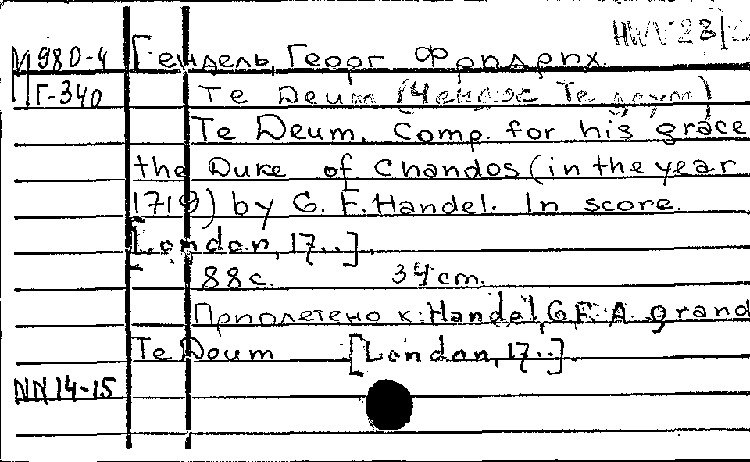 HWV 28
М 980-4 Гендель, Георг Фридрих.
Г-340 Te Deum (Чендос Те деум)
Te Deum. Comp. for his grace
the Duke of Chandos (in the year
1719) by G. F. Handel. In score.
[London, 17..].
88 с. 34 cm.
Приплетено к: Handel, G.F. A grand
Te Deum [London, 17..].
NN 14-15